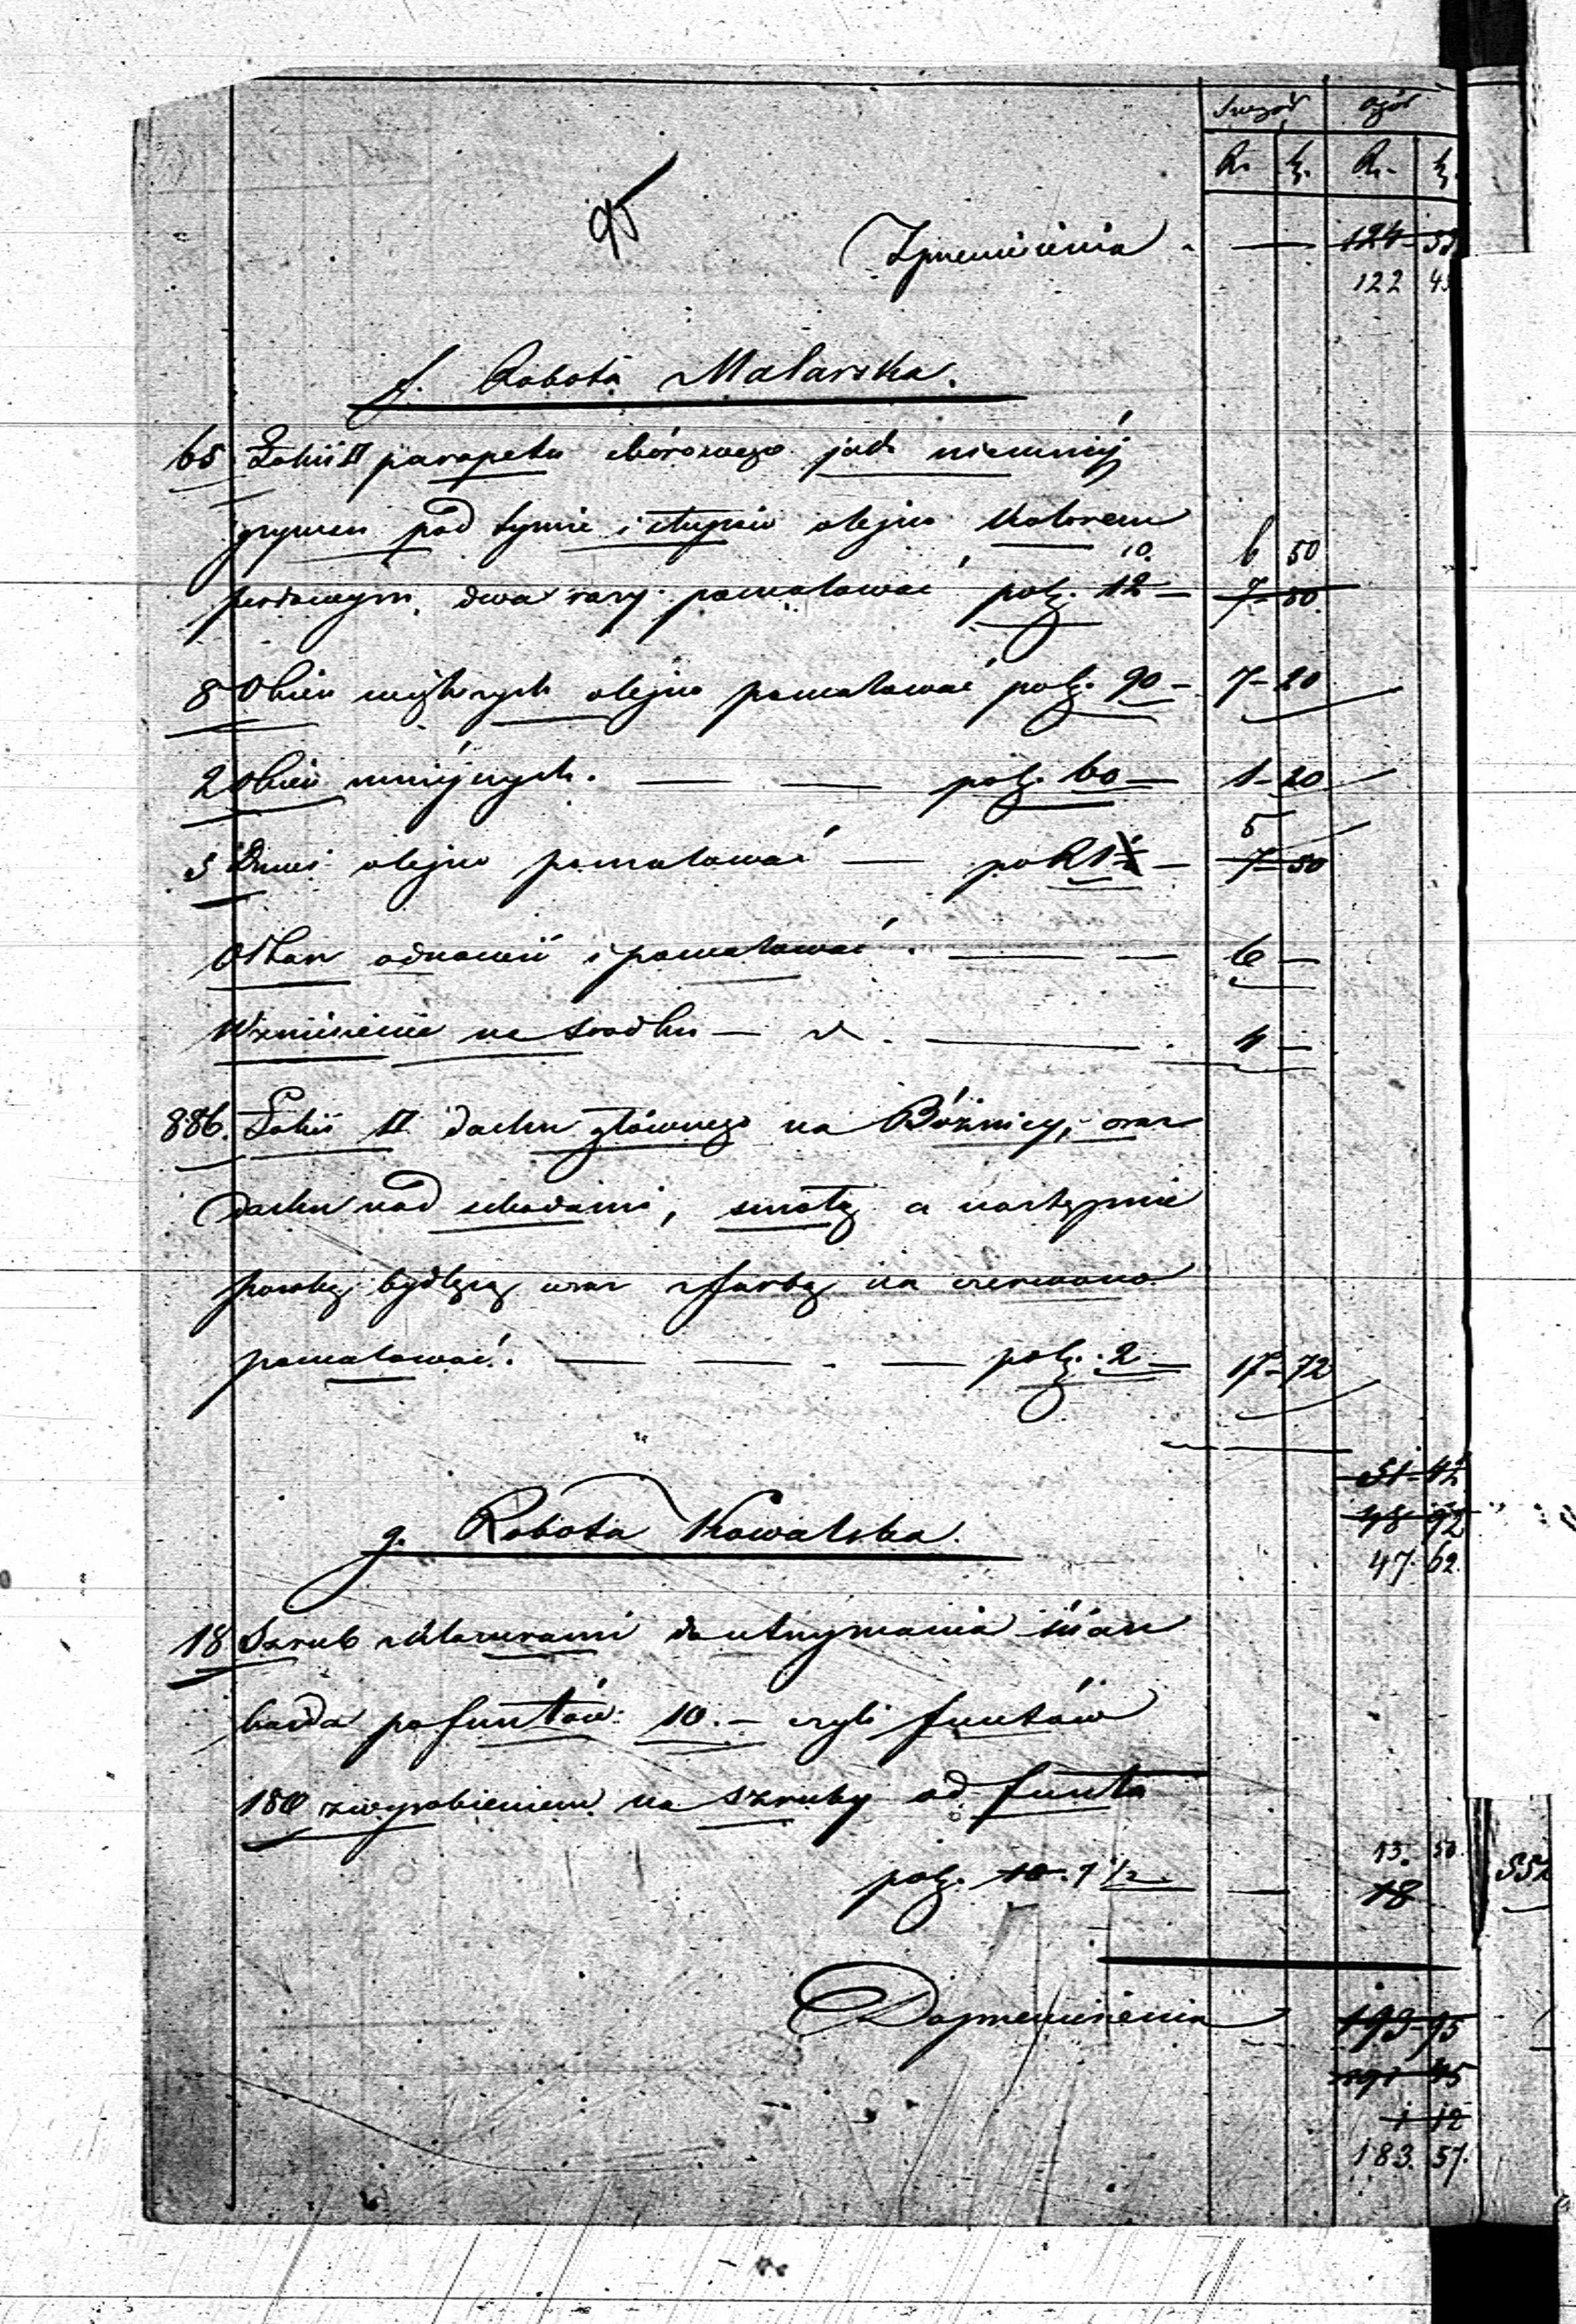 Szczegół Ogół
Rs. k. Rs. k.
95
Z przeniesienia — 124 53
122 45
f. Robota Malarska.
65 Łokci □ parapetu chórowego jako niemniéj
grymsu pod tymże i słupów olejno kolorem
perłowym, dwa razy pomalować po k. 12 —
10. 6 50
7 80
8 Okien większych olejno pomalować po k. 90 — 7 - 20
2 Okien mniejszych. — — po k. 60 — 1 - 20
5 Drzwi olejno pomalować — po R 1 — 5
7 - 50
Ołtarz odnowić i pomalować. — — 6 —
Wzniesienie na środku — d. — 4 —
886. Łokci □ dachu głównego na Bóżnicy, oraz
dachu nad schodami, smołą a następnie
powłoką bydlęcą wraz z farbą na czerwono
pomalować. — — — po k. 2 — 17 - 72
51 - 42
48 92
47. 62.
g. Robota Kowalska.
18 Szrub z klamrami do utrzymania ścian
każda po funtów 10. — czyli funtów
180 z wyrobieniem na szruby od funta
po k. 10. 7 1/2 — 13. 50.
18
552
Do przeniesienia 193 - 95
191 45
1 12
183. 57.